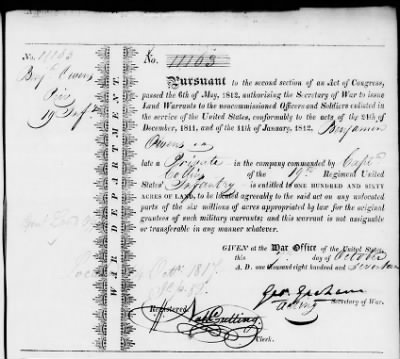 No. 11163
Benj. Owens
19 Inf.
WAR DEPARTMENT.
No. 11163
Pursuant to the second section of an Act of Congress,
passed the 6th of May, 1812, authorising the Secretary of War to issue
Land Warrants to the noncommissioned Officers and Soldiers enlisted in
the service of the United States, conformably to the acts of the 24th
December, 1811, and of the 11th January, 1812, Benjamin
Owens
late a Private in the company commanded by Capt
of the 19th Regiment United
States' Infantry is entitled to ONE HUNDRED AND SIXTY
ACRES OF LAND, to be located agreeably to the said act on any unlocated
parts of the six millions of acres appropriated by law for the original
grantees of such military warrants; and this warrant is not assignable
or transferable in any manner whatever.
GIVEN at the War Office of the United States,
this day of October
A. D. one thousand eight hundred and Seventeen
Geo. Graham
Acting Secretary of War.
Octr. 1817
Registered
Clerk.